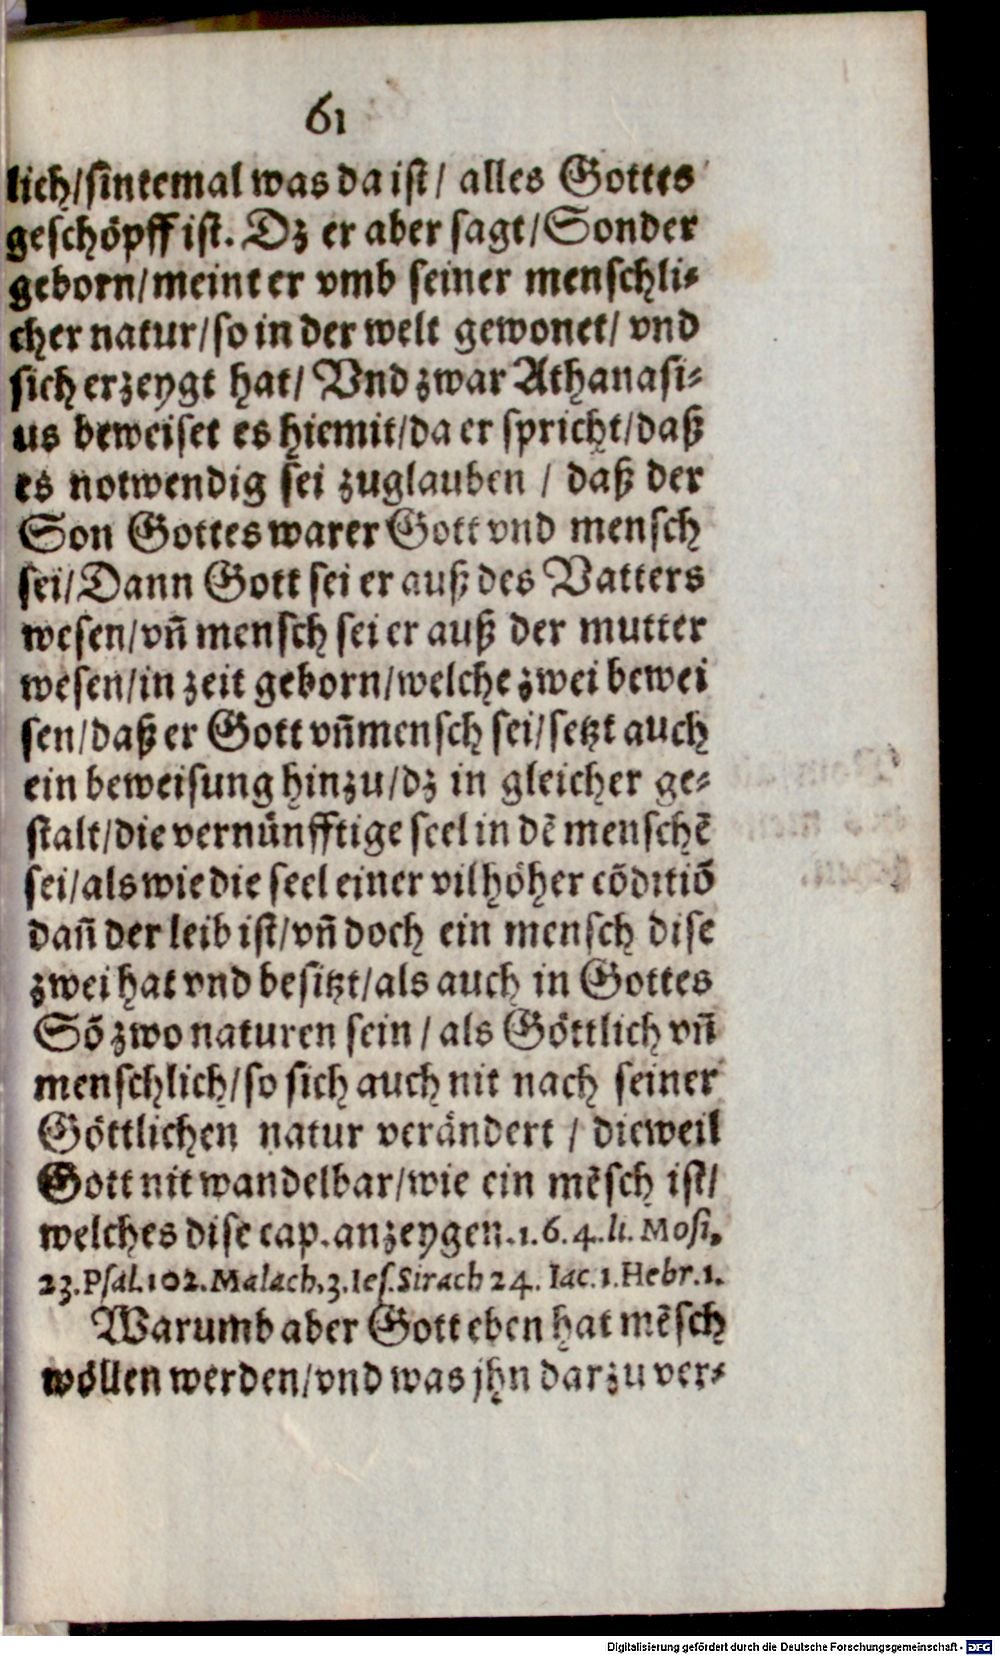 61
lich/sintemal was da ist/ alles Gottes
geschöpff ist. Dz er aber sagt/Sonder
geborn/meint er vmb seiner menschli-
cher natur/so in der welt gewonet/ vnd
sich erzeygt hat/ Vnd zwar Athanasi-
us beweiset es hiemit/da er spricht/daß
es notwendig sei zuglauben / daß der
Son Gottes warer Gott vnd mensch
sei/Dann Gott sei er auß des Vatters
wesen/vñ mensch sei er auß der mutter
wesen/in zeit geborn/welche zwei bewei
sen/daß er Gott vñ mensch sei/setzt auch
ein beweisung hinzu/dz in gleicher ge-
stalt/die vernünfftige seel in dẽ menschẽ
sei/als wie die seel einer vil höher cõditiõ
dañ der leib ist/vñ doch ein mensch dise
zwei hat vnd besitzt/als auch in Gottes
Sõ zwo naturen sein / als Göttlich vñ
menschlich/so sich auch nit nach seiner
Göttlichen natur verändert / dieweil
Gott nit wandelbar/wie ein mẽsch ist/
welches dise cap. anzeygen. 1. 6. 4. li. Mosi.
23. Psal. 102. Malach. 3. Ies. Sirach 24. Iac. 1. Hebr. 1.
Warumb aber Gott eben hat mẽsch
wöllen werden/vnd was jhn darzu ver-
Digitalisierung gefördert durch die Deutsche Forschungsgemeinschaft - DFG